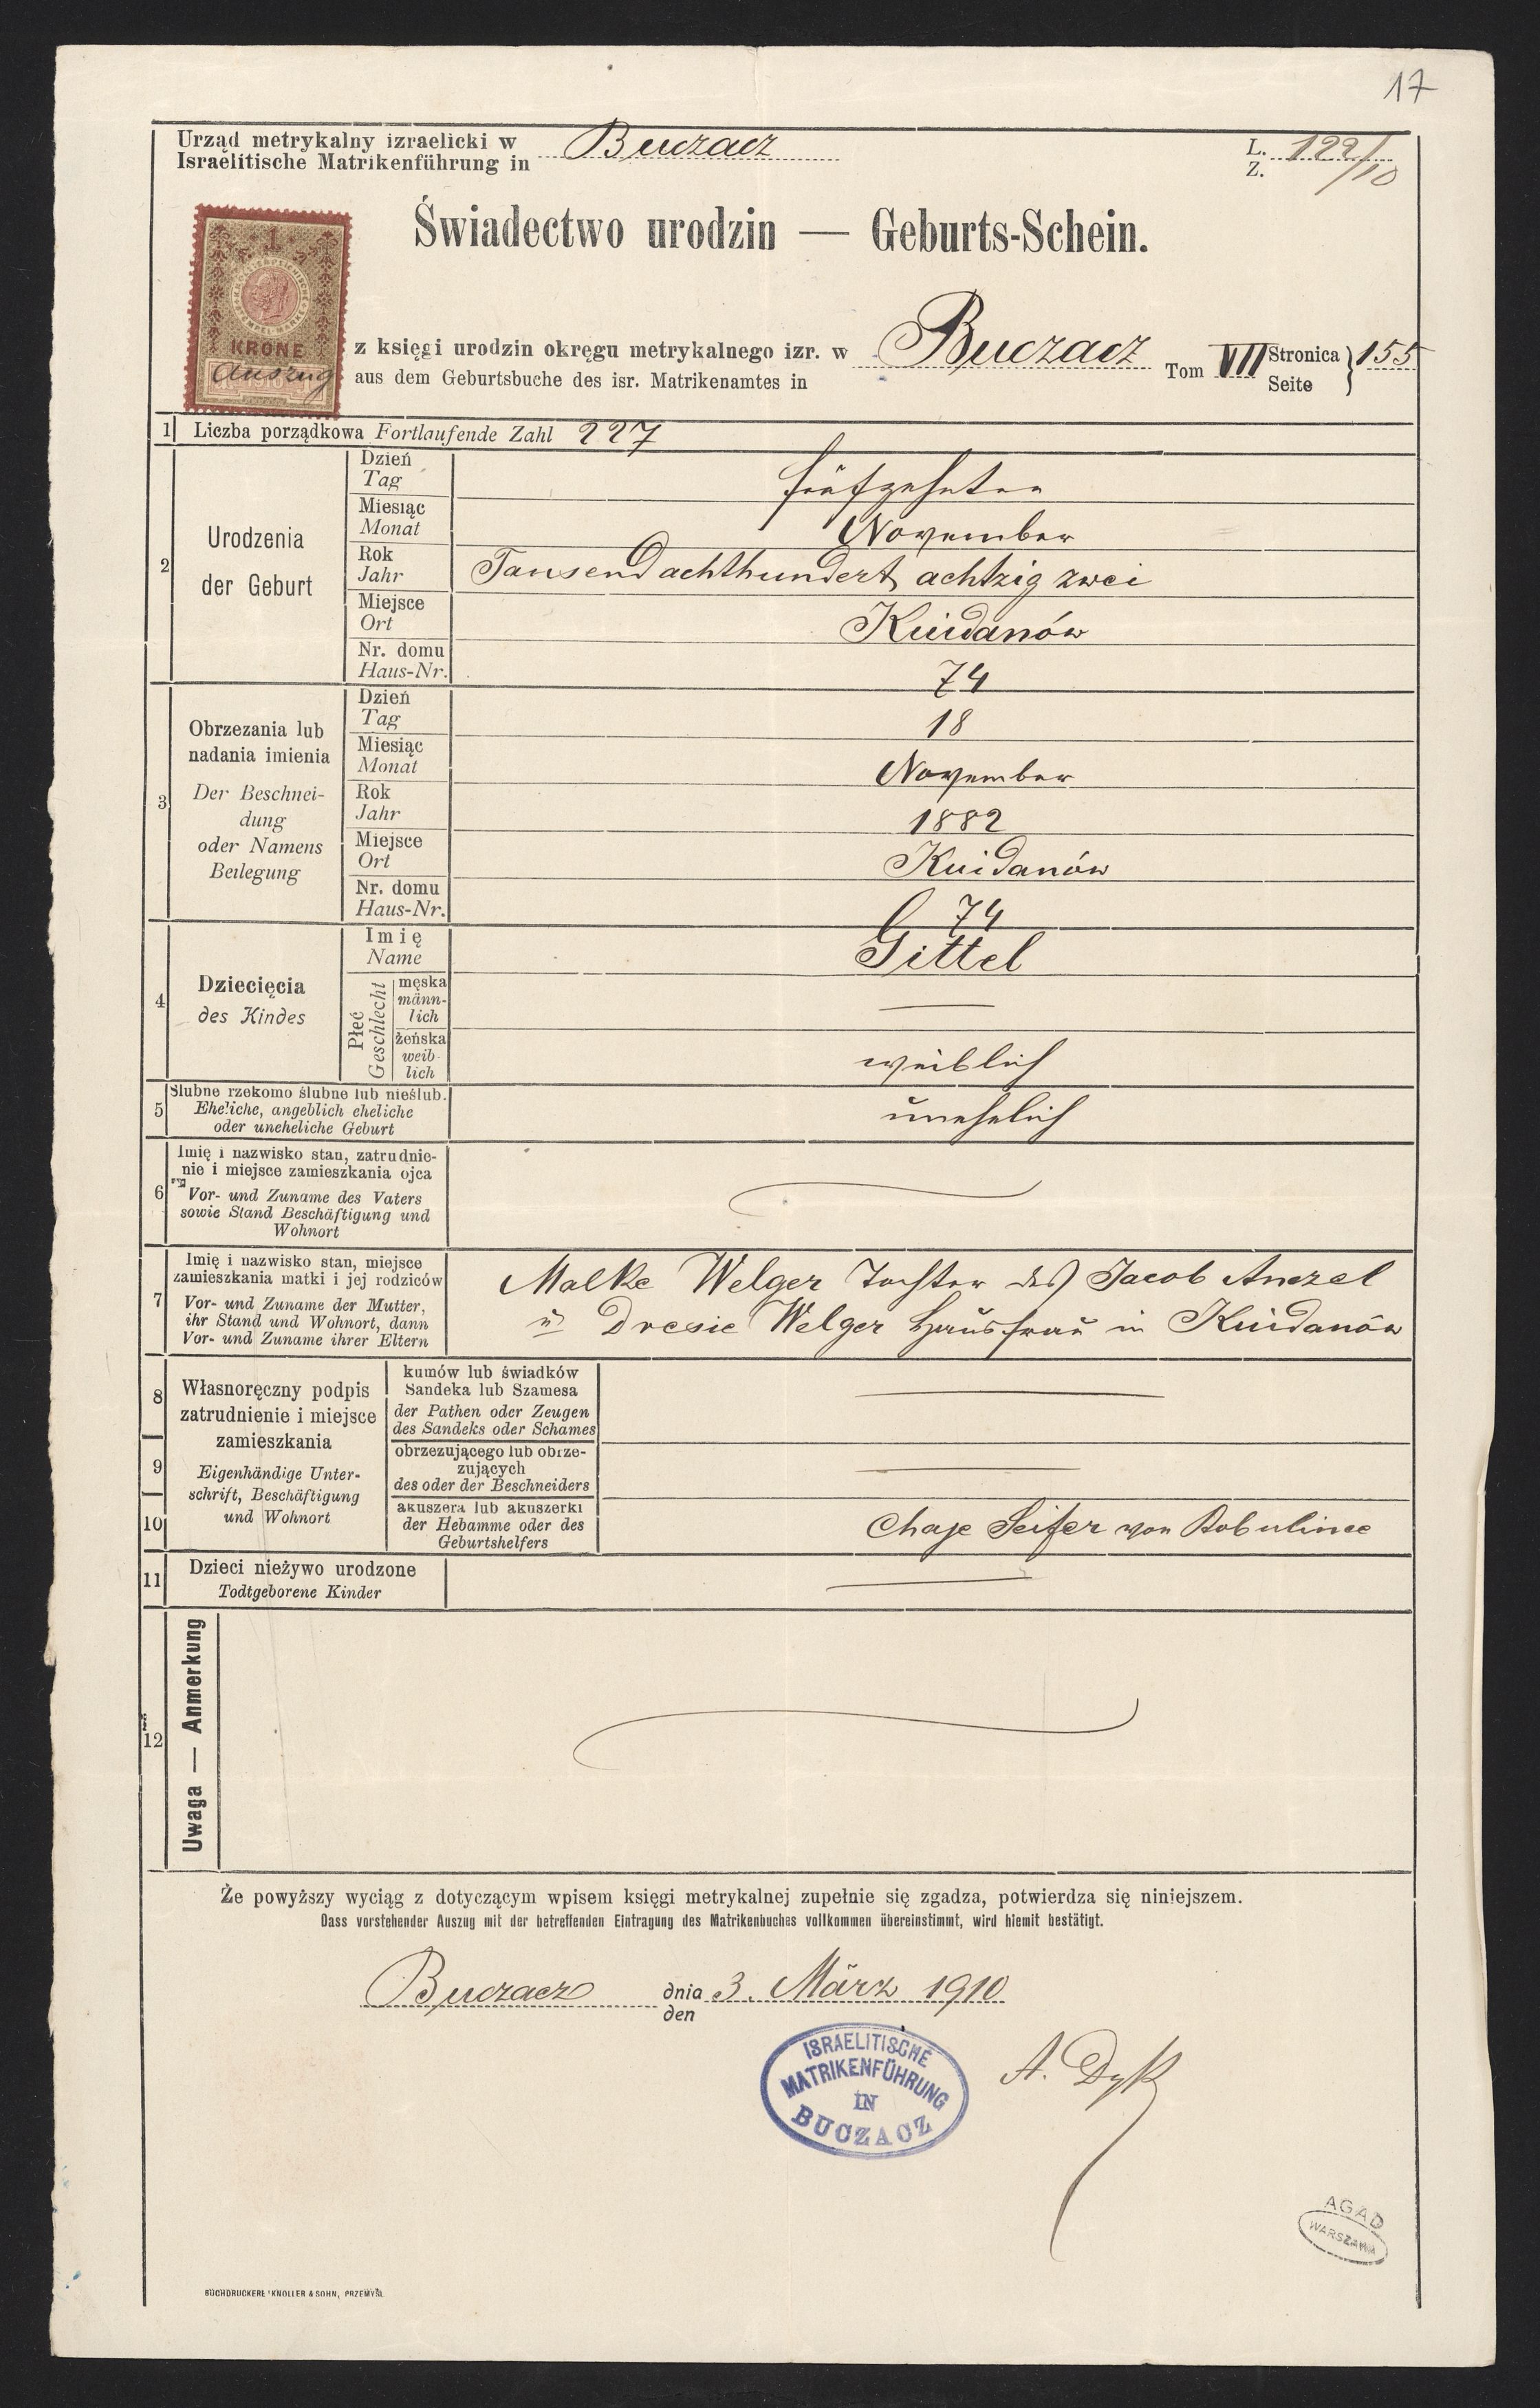 17
Urząd metrykalny izraelicki w Buczacz
Israëlitische Matrikenführung in
L. 122/10
Z.
Świadectwo urodzin — Geburts-Schein.
1
KRONE
Auszug
z księgi urodzin okręgu metrykalnego izr. w Buczacz Tom VII Stronica } 155
aus dem Geburtsbuche des isr. Matrikenamtes in Seite
1 Liczba porządkowa Fortlaufende Zahl 227
2 Urodzenia
der Geburt
Dzień
Tag fünfzehnten
Miesiąc
Monat November
Rok
Jahr Tausend achthundert achtzig zwei
Miejsce
Ort Kuidanów
Nr. domu
Haus-Nr. 74
3 Obrzezania lub
nadania imienia
Der Beschnei-
dung
oder Namens
Beilegung
Dzień
Tag 18
Miesiąc
Monat November
Rok
Jahr 1882
Miejsce
Ort Kuidanów
Nr. domu
Haus-Nr. 74
4 Dziecięcia
des Kindes
Imię
Name Gittel
Płeć
Geschlecht
męska
männ-
lich —
żeńska
weib-
lich weiblich
5 Ślubne rzekomo ślubne lub nieślub.
Eheliche, angeblich eheliche
oder uneheliche Geburt unehelich
6 Imię i nazwisko stan, zatrudnie-
nie i miejsce zamieszkania ojca
Vor- und Zuname des Vaters
sowie Stand Beschäftigung und
Wohnort
7 Imię i nazwisko stan, miejsce
zamieszkania matki i jej rodziców
Vor- und Zuname der Mutter,
ihr Stand und Wohnort, dann
Vor- und Zuname ihrer Eltern
Malke Welger Tochter des Jacob Anczel
u Dresie Welger Hausfrau in Kuidanów
8 Własnoręczny podpis
9 zatrudnienie i miejsce
10 zamieszkania
Eigenhändige Unter-
schrift, Beschäftigung
und Wohnort
kumów lub świadków
Sandeka lub Szamesa
der Pathen oder Zeugen
des Sandeks oder Schames —
obrzezującego lub obrze-
zujących
des oder der Beschneiders —
akuszera lub akuszerki
der Hebamme oder des
Geburtshelfers
Chaje Seifer von Dobulince
11 Dzieci nieżywo urodzone
Todtgeborene Kinder —
12 Uwaga — Anmerkung
Że powyższy wyciąg z dotyczącym wpisem księgi metrykalnej zupełnie się zgadza, potwierdza się niniejszem.
Dass vorstehender Auszug mit der betreffenden Eintragung des Matrikenbuches vollkommen übereinstimmt, wird hiemit bestätigt.
Buczacz dnia 3. März 1910
den
ISRAELITISCHE
MATRIKENFÜHRUNG
IN
BUCZACZ
A. Dyk
AGAD
WARSZAWA
BUCHDRUCKEREI KNOLLER & SOHN, PRZEMYŚL